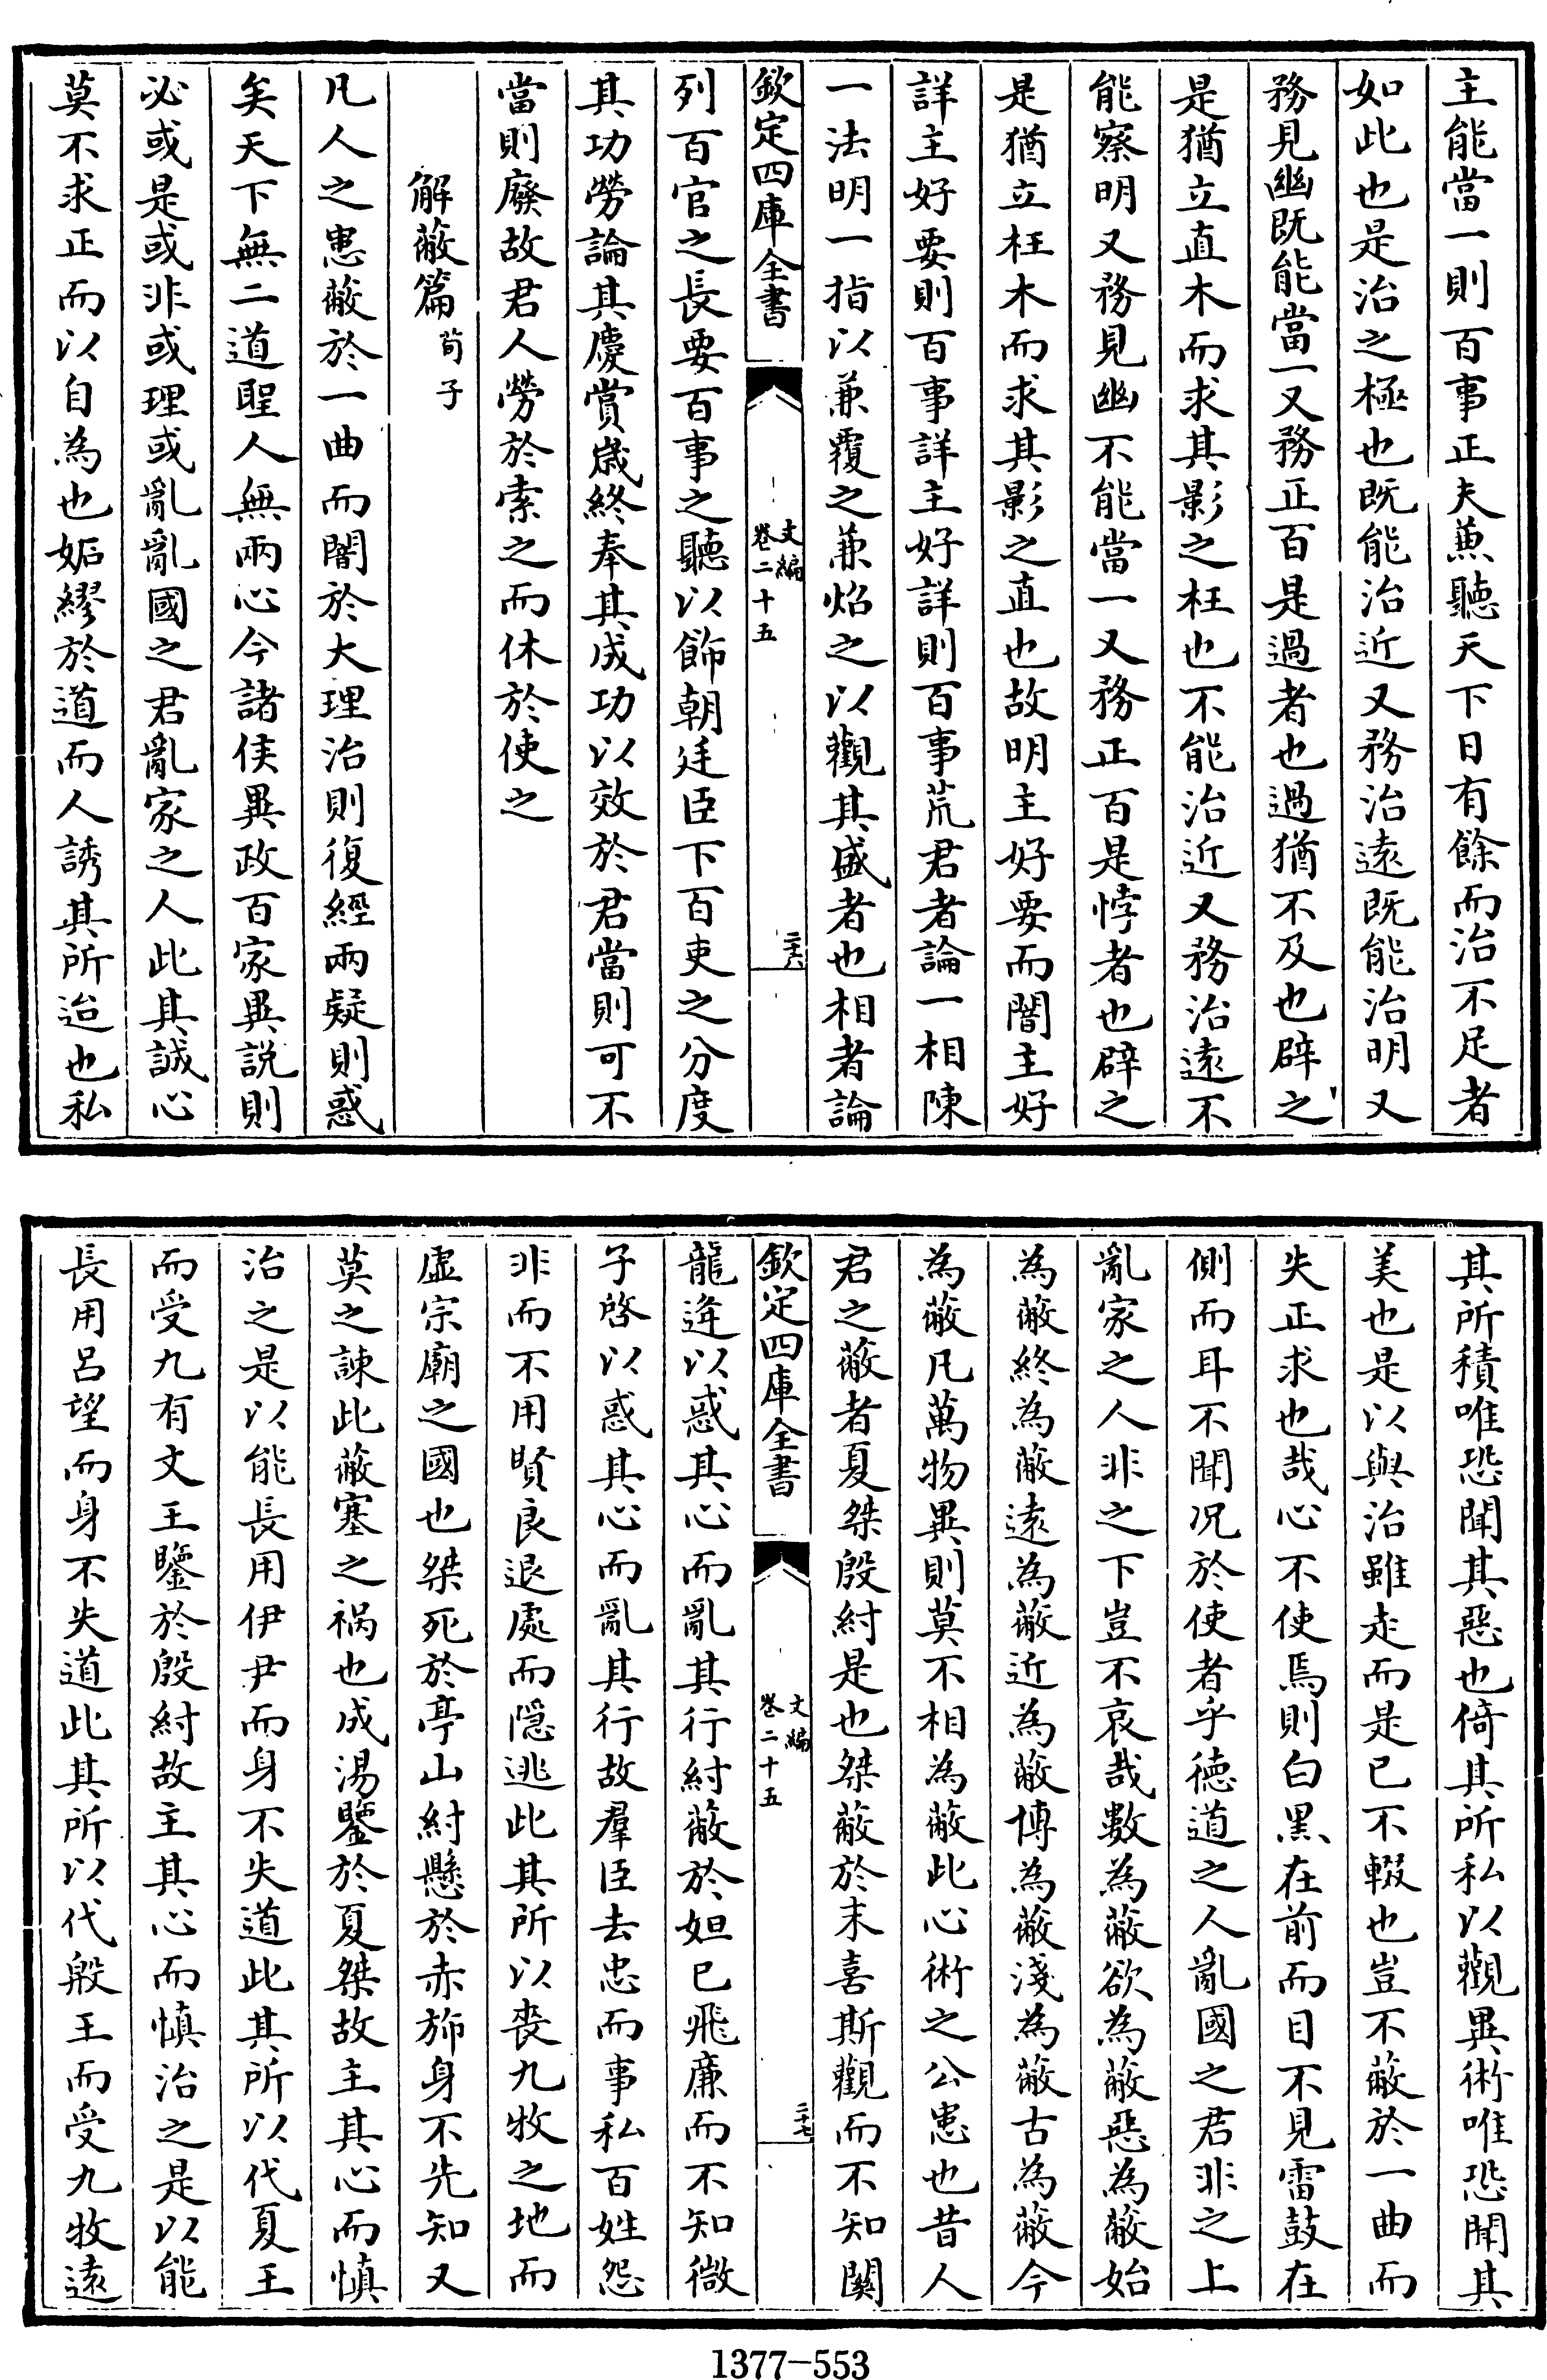 主能當一則百事正夫蕙聽天下日有餘而治不足者
如此也是治之極也既能治近又務治遠既能治明又
務見幽既能當一又務正百是過者也過猶不及也辟之
是猶立直木而求其影之枉也不能治近又務治遠不
能察明又務見幽不能當一又務正百是悖者也辟之
是猶立枉木而求其影之直也故明主好要而闇主好
詳主好要則百事詳主好詳則百事荒君者論一相陳
一法明一指以兼覆之兼炤之以觀其盛者也相者論
欽定四庫全書
文編
卷二十五
二十六
列百官之長要百事之聽以飾朝廷臣下百吏之分度
其功勞論其慶賞歲終奉其成功以效於君當則可不
當則廢故君人勞於索之而休於使之
解蔽篇荀子
凡人之患蔽於一曲而闇於大理治則復經兩疑則惑
矣天下無二道聖人無兩心今諸侯異政百家異說則
必或是或非或理或亂亂國之君亂家之人此其誠心
莫不求正而以自為也妬繆於道而人誘其所迨也私
其所積唯恐聞其惡也倚其所私以觀異術唯恐聞其
美也是以與治雖走而是已不輟也豈不蔽於一曲而
失正求也哉心不使焉則白黑在前而目不見雷鼓在
側而耳不聞況於使者乎德道之人亂國之君非之上
亂家之人非之下豈不哀哉數為蔽欲為蔽惡為蔽始
為蔽終為蔽遠為蔽近為蔽博為蔽淺為蔽古為蔽今
為蔽凡萬物異則莫不相為蔽此心術之公患也昔人
君之蔽者夏桀殷紂是也桀蔽於末喜斯觀而不知關
欽定四庫全書
文編
卷二十五
二十七
龍逄以惑其心而亂其行紂蔽於妲已飛廉而不知微
子啓以惑其心而亂其行故羣臣去忠而事私百姓怨
非而不用賢良退處而隠逃此其所以喪九牧之地而
虛宗廟之國也桀死於亭山紂懸於赤斾身不先知又
莫之諫此蔽塞之禍也成湯鑒於夏桀故主其心而慎
治之是以能長用伊尹而身不失道此其所以代夏王
而受九有文王鑒於殷紂故主其心而慎治之是以能
長用呂望而身不失道此其所以代殷王而受九牧遠
1377-553